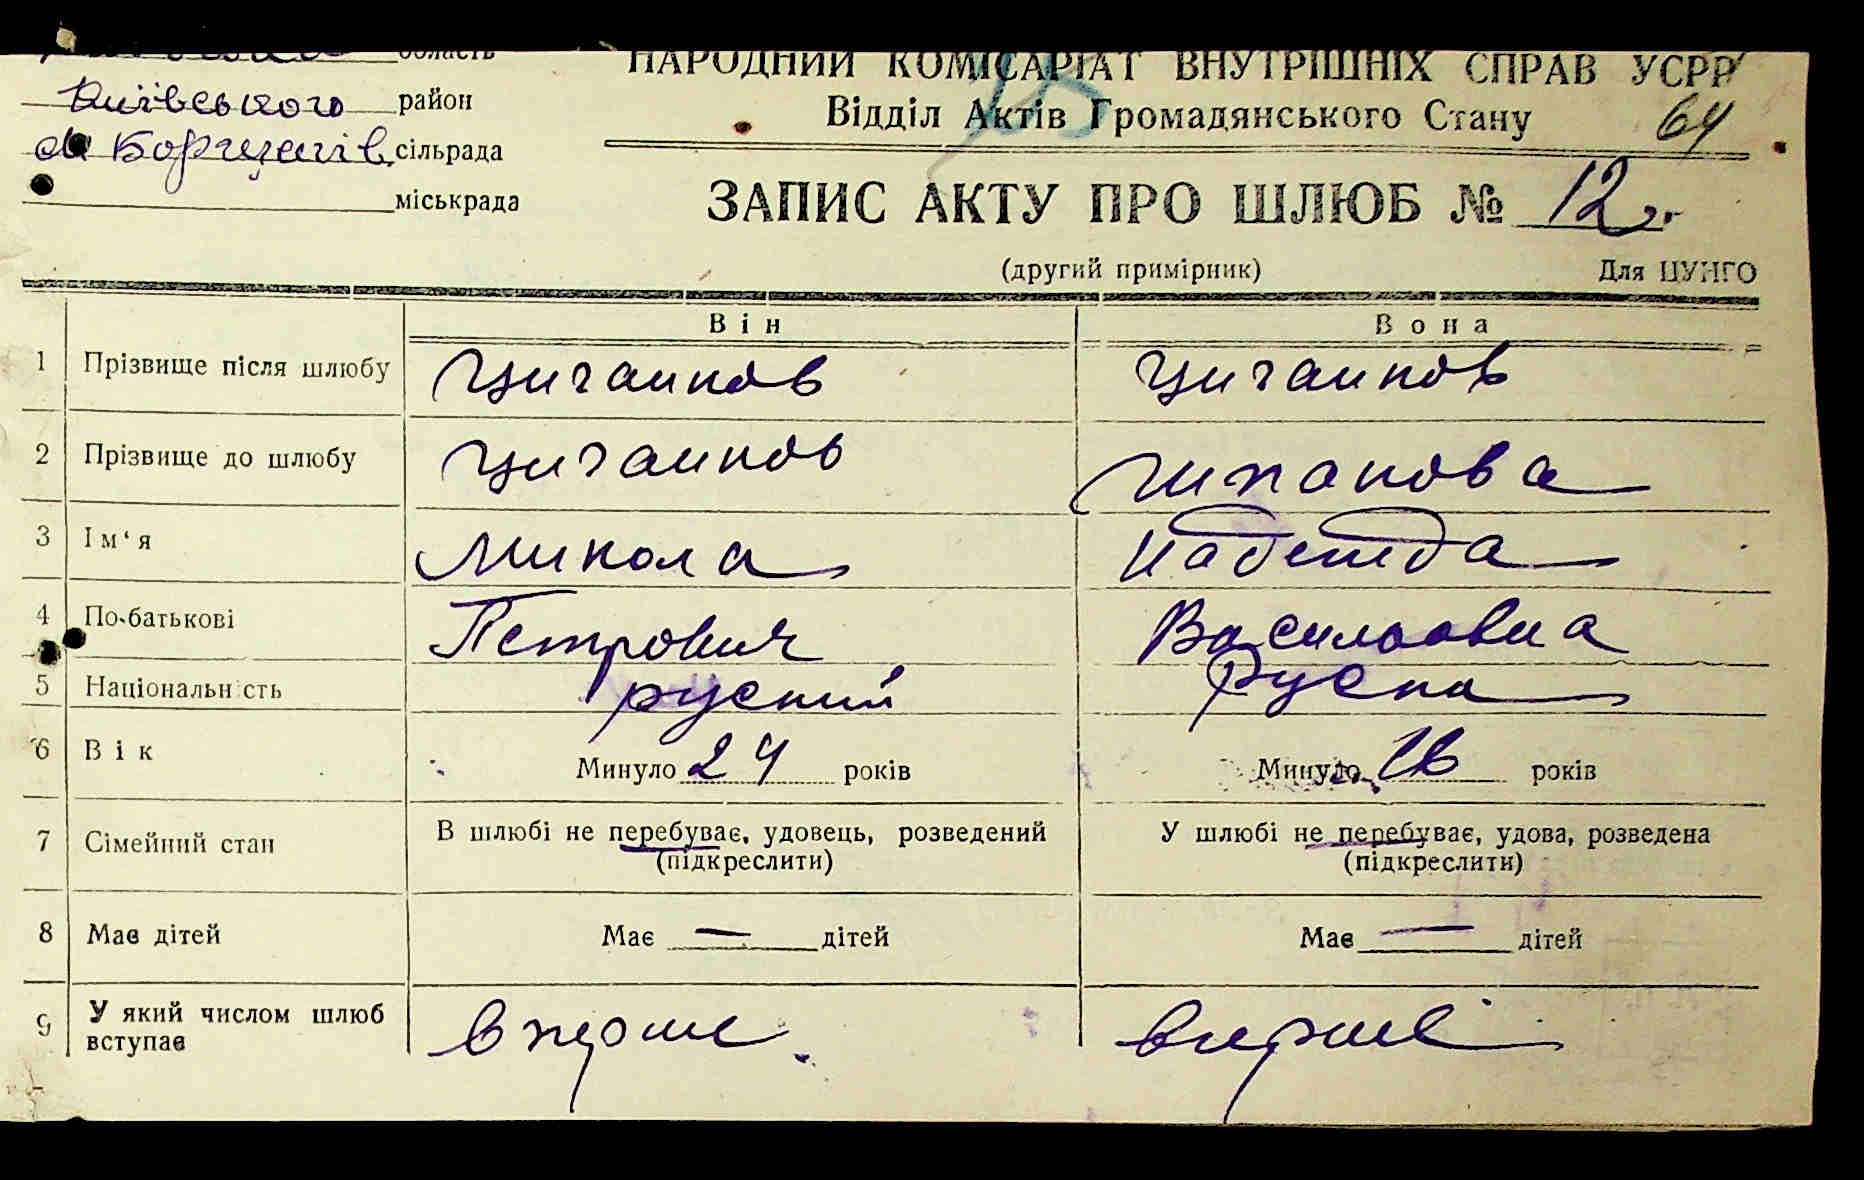 область
Київського район
Борщагів. сільрада
міськрада
НАРОДНИЙ КОМІСАРІАТ ВНУТРІШНІХ СПРАВ УСРР
Відділ Актів Громадянського Стану 64
ЗАПИС АКТУ ПРО ШЛЮБ № 12
(другий примірник) Для ЦУНГО
Він Вона
1 Прізвище після шлюбу Циганков Циганков
2 Прізвище до шлюбу Циганков
3 Ім'я Микола Надежда
4 По-батькові Петрович Васильовна
5 Національність руский Руска
6 Вік Минуло 24 років Минуло років
7 Сімейний стан В шлюбі не перебуває, удовець, розведений У шлюбі не перебуває, удова, розведена
(підкреслити) (підкреслити)
8 Має дітей Має — дітей Має — дітей
9 У який числом шлюб вперше вперше
вступає